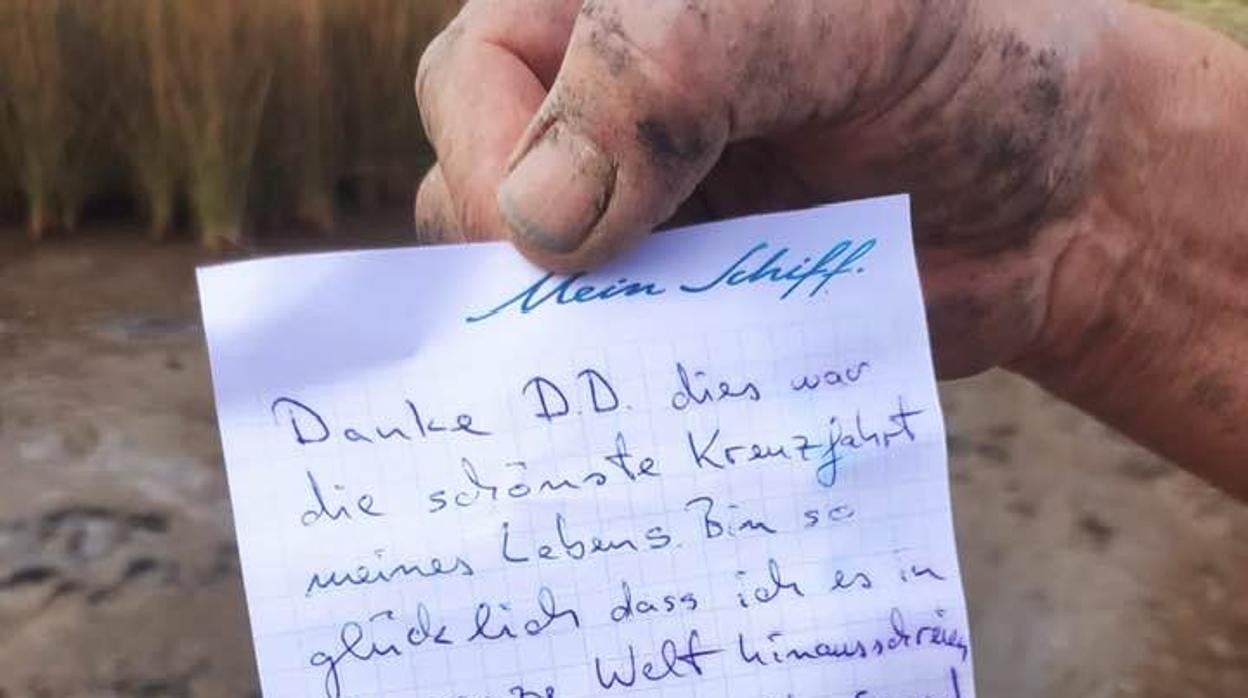 Mein Schiff.
Danke D.D. dies war
die schönste Kreuzfahrt
meines Lebens. Bin so
glücklich dass ich es in
Welt hinausschreien